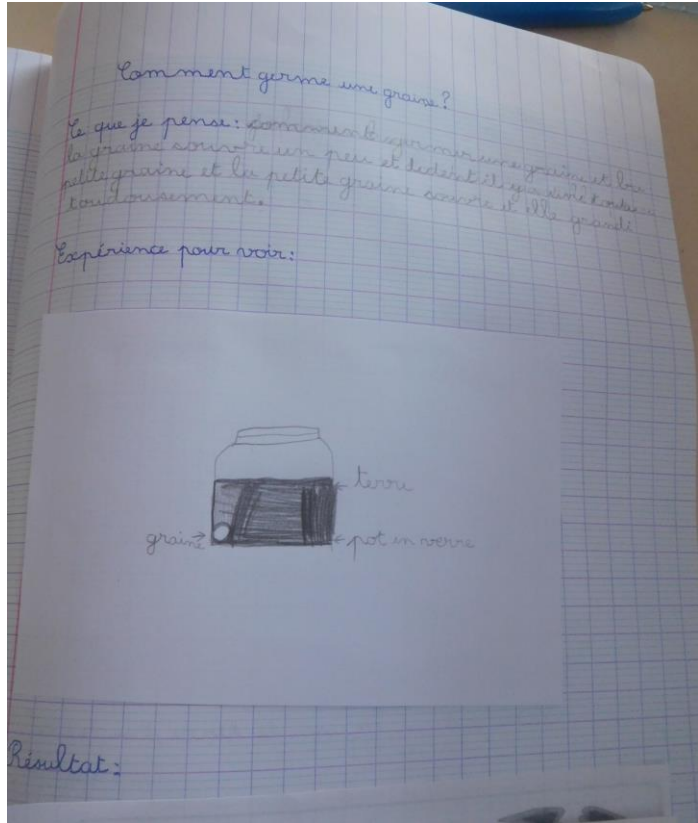 Comment germe une graine?
Ce que je pense: comment germer une graine et bin
la graine souvre un peu et dedent il y a une toute
petite graine et la petite graine souvre et elle grandi
toudousement.
Expérience pour voir:
terre
graine
pot en verre
Résultat: